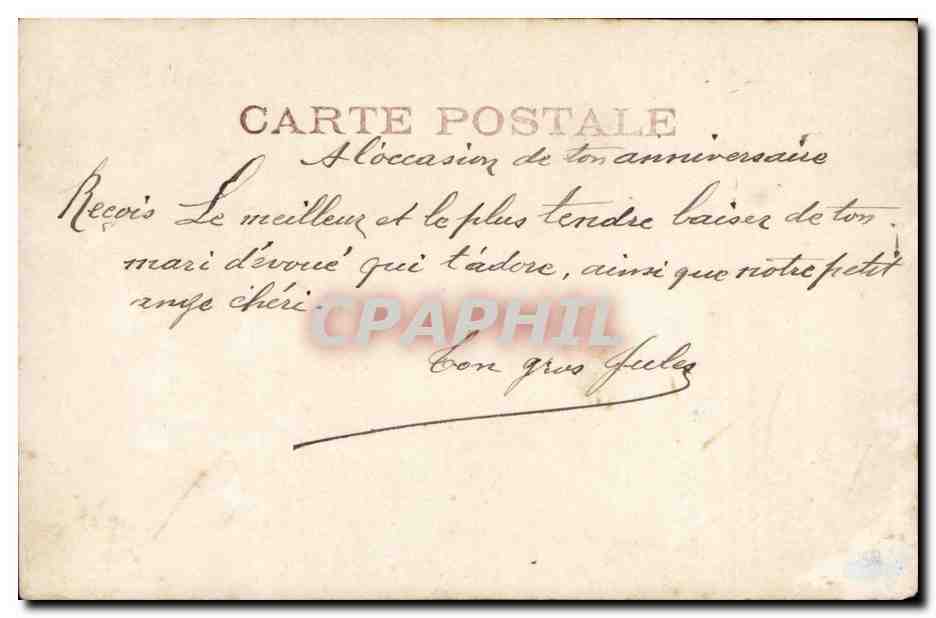 CARTE POSTALE
A l'occasion de ton anniversaire
Reçois Le meilleur et le plus tendre baiser de ton
mari d'évoué qui t'adore, ainsi que notre petit
ange chéri.
CPAPHIL
Ton gros Jules